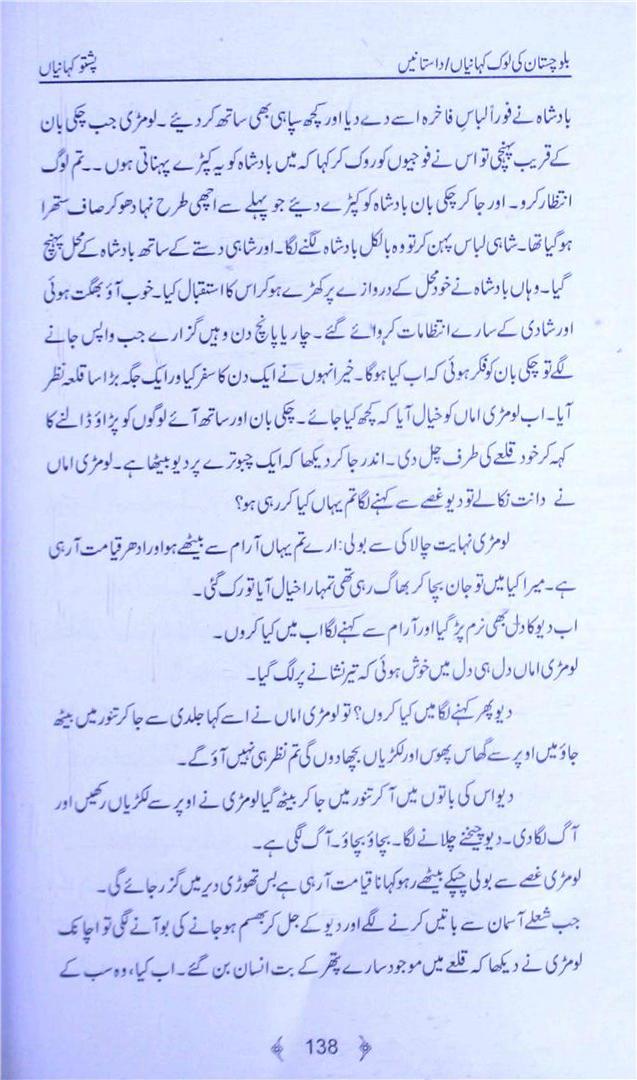 بلوچستان کی لوک کہانیاں/داستانیں
پشتو کہانیاں
بادشاہ نے فوراً لباسِ فاخرہ اسے دے دیا اور کچھ سپاہی بھی ساتھ کر دیئے۔ لومڑی جب چکی بان
کے قریب پہنچی تو اس نے فوجیوں کو روک کر کہا کہ میں بادشاہ کو یہ کپڑے پہناتی ہوں۔۔تم لوگ
انتظار کرو۔ اور جا کر چکی بان بادشاہ کو کپڑے دیئے جو پہلے سے اچھی طرح نہا دھو کر صاف ستھرا
ہو گیا تھا۔ شاہی لباس پہن کر تو وہ بالکل بادشاہ لگنے لگا۔ اور شاہی دستے کے ساتھ بادشاہ کے محل پہنچ
گیا۔ وہاں بادشاہ نے خود محل کے دروازے پر کھڑے ہو کر اس کا استقبال کیا۔ خوب آؤ بھگت ہوئی
اور شادی کے سارے انتظامات کروائے گئے۔ چار یا پانچ دن وہیں گزارے جب واپس جانے
لگے تو چکی بان کو فکر ہوئی کہ اب کیا ہوگا۔ خیر انہوں نے ایک دن کا سفر کیا اور ایک جگہ بڑا سا قلعہ نظر
آیا۔ اب لومڑی اماں کو خیال آیا کہ کچھ کیا جائے۔ چکی بان اور ساتھ آئے لوگوں کو پڑاؤ ڈالنے کا
کہہ کر خود قلعے کی طرف چل دی۔ اندر جا کر دیکھا کہ ایک چبوترے پر دیو بیٹھا ہے۔ لومڑی اماں
نے دانت نکالے تو دیو غصے سے کہنے لگا تم یہاں کیا کر رہی ہو؟
لومڑی نہایت چالاکی سے بولی: ارے تم یہاں آرام سے بیٹھے ہو اور ادھر قیامت آ رہی
ہے۔ میرا کیا میں تو جان بچا کر بھاگ رہی تھی تمہارا خیال آیا تو رک گئی۔
اب دیو کا دل بھی نرم پڑ گیا اور آرام سے کہنے لگا اب میں کیا کروں۔
لومڑی اماں دل ہی دل میں خوش ہوئی کہ تیر نشانے پر لگ گیا۔
دیو پھر کہنے لگا میں کیا کروں؟ تو لومڑی اماں نے اسے کہا جلدی سے جا کر تنور میں بیٹھ
جاؤ میں اوپر سے گھاس پھوس اور لکڑیاں بچھا دوں گی تم نظر ہی نہیں آؤ گے۔
دیو اس کی باتوں میں آ کر تنور میں جا کر بیٹھ گیا لومڑی نے اوپر سے لکڑیاں رکھیں اور
آگ لگا دی۔ دیو چیخنے چلانے لگا۔ بچاؤ بچاؤ۔ آگ لگی ہے۔
لومڑی غصے سے بولی چپکے بیٹھے رہو کہا نا قیامت آ رہی ہے بس تھوڑی دیر میں گزر جائے گی۔
جب شعلے آسمان سے باتیں کرنے لگے اور دیو کے جل کر بھسم ہو جانے کی بو آنے لگی تو اچانک
لومڑی نے دیکھا کہ قلعے میں موجود سارے پتھر کے بت انسان بن گئے۔ اب کیا، وہ سب کے
138